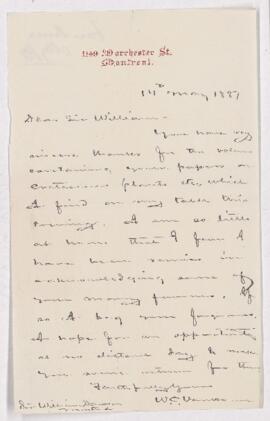 1149 Dorchester St.
Montreal.
14th May 1889
Dear Sir William -
You have my
sincere thanks for the volume
containing your papers on
Cretaceous plants etc, which
I find on my table this
evening. I am so little
at home that I fear I
have been remiss in
acknowledging some of
your many favours. If
so I beg your forgiveness.
I hope for an opportunity
at no distant day to make
you some return for them
Faithfully Yours
W.C. Van Horne
Sir William Dawson
Montreal